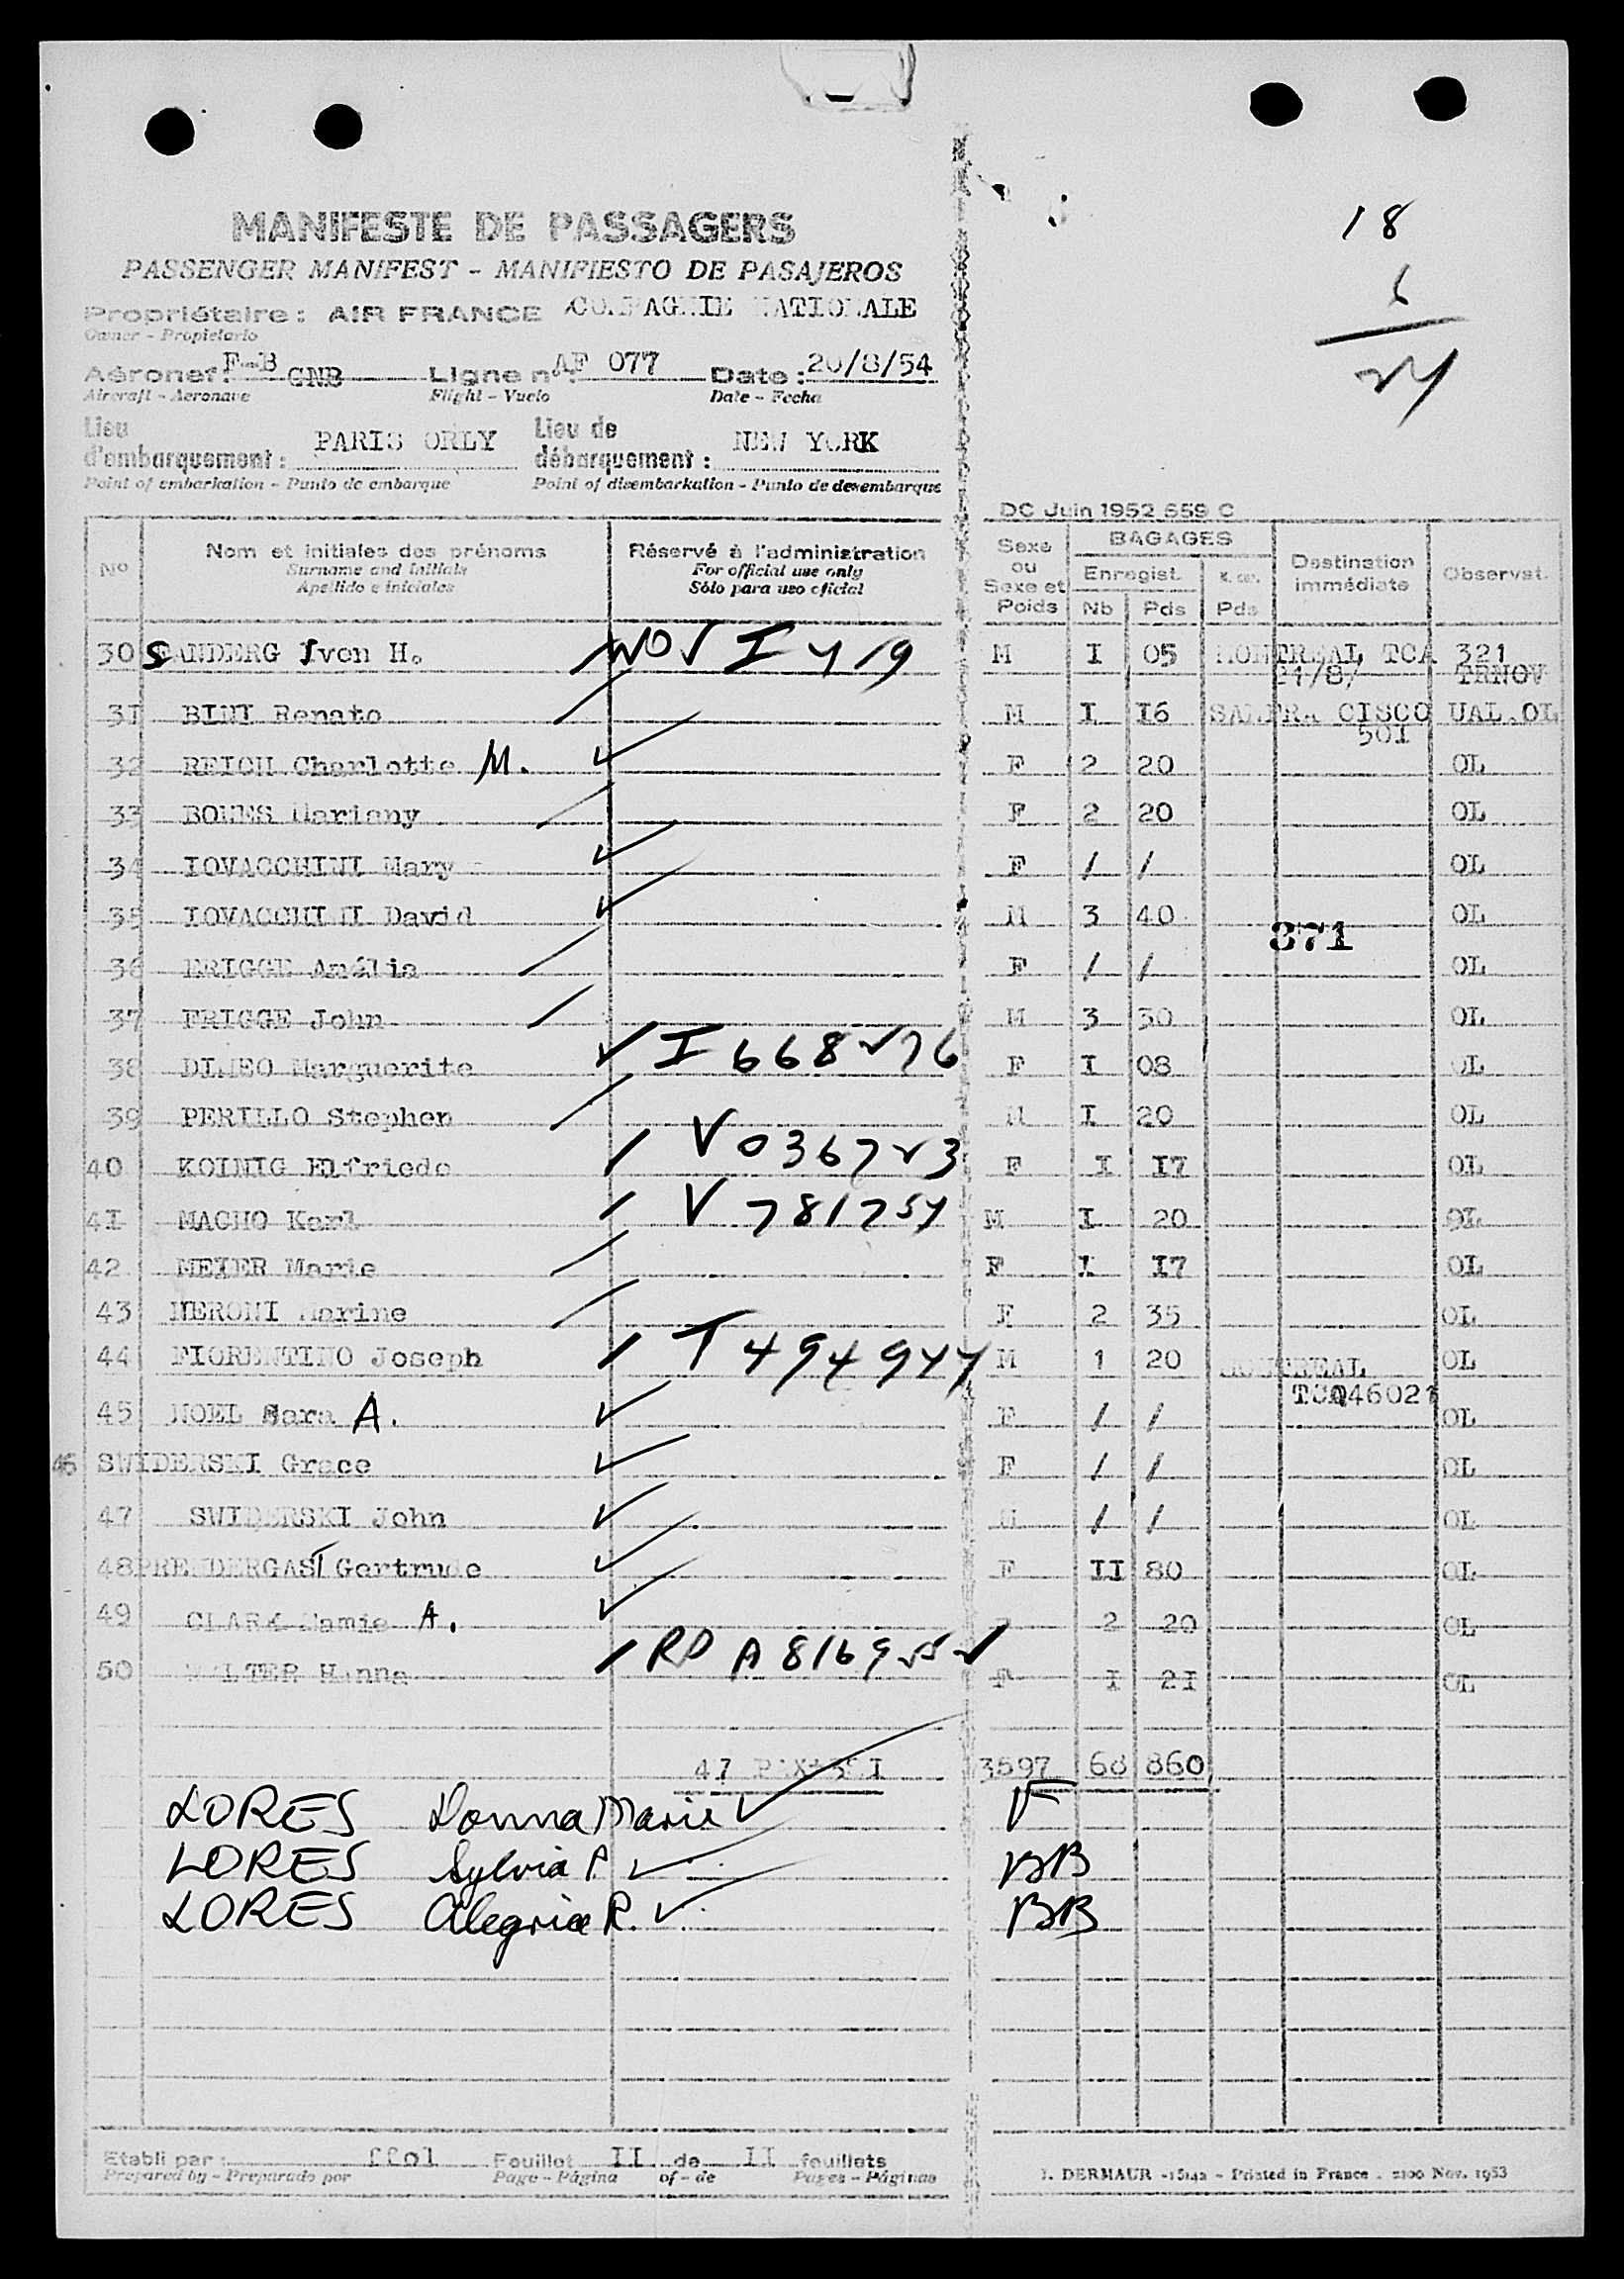 18
6
24
MANIFESTE DE PASSAGERS
PASSENGER MANIFEST - MANIFIESTO DE PASAJEROS
Propriétaire : AIR FRANCE COMPAGNIE NATIONALE
Owner - Propietario
Aéronef : F-B GNB Ligne n° : AF 077 Date : 20/8/54
Aircraft - Aeronave Flight - Vuelo Date - Fecha
Lieu d'embarquement : PARIS ORLY Lieu de débarquement : NEW YORK
Point of embarkation - Punto de embarque Point of disembarkation - Punto de desembarque
DC Juin 1952 659 C
N° Nom et initiales des prénoms Réservé à l'administration Sexe ou Sexe et Poids BAGAGES Destination immédiate Observat.
Surname and initials For official use only Enregist.
Apellido e iniciales Sólo para uso oficial Nb Pds Pds
30 SANDERG Yvon H. M I 05 MONTREAL TCA 321
21/8/ TRNOV
31 BINI Renato M I I6 SANFRA CISCO UAL.OL
501
32 REICH Charlotte M. ✓ F 2 20 OL
33 Mariany F 2 20 OL
34 IOVACCHINI Mary ✓ F / / OL
35 IOVACCHINI David ✓ M 3 40 OL
371
36 FRIGGE Amélia F / / OL
37 FRIGGE John M 3 30 OL
38 DIMEO Marguerite ✓ I 668276 F I 08 OL
39 PERILLO Stephen M I 20 OL
40 KOINIG Elfriede / V 036723 F I I7 OL
4I MACHO Karl / V 781754 M I 20 OL
42 MEIER Marie F I I7 OL
43 NERONI Marine F 2 35 OL
44 FIORENTINO Joseph / T 494944 M 1 20 MONTREAL OL
45 NOEL Sara A. ✓ F / / OL
46 SWIDERSKI Grace ✓ F / / OL
47 SWIDERSKI John ✓ M / / OL
48 PRENDERGAST Gertrude ✓ F II 80 OL
49 CLARK Mamie A. ✓ 2 20 OL
50 WALTER Hanna / F I 2I OL
47 3597 68 860
LORES Donna Marie ✓ F
LORES Sylvia P. ✓ BB
LORES Alegria R. ✓ BB
Etabli par : Feuillet II de II feuillets
Prepared by - Preparado por Page - Página of - de Pages - Páginas
I. DERMAUR - Printed in France . 2100 Nov. 1953